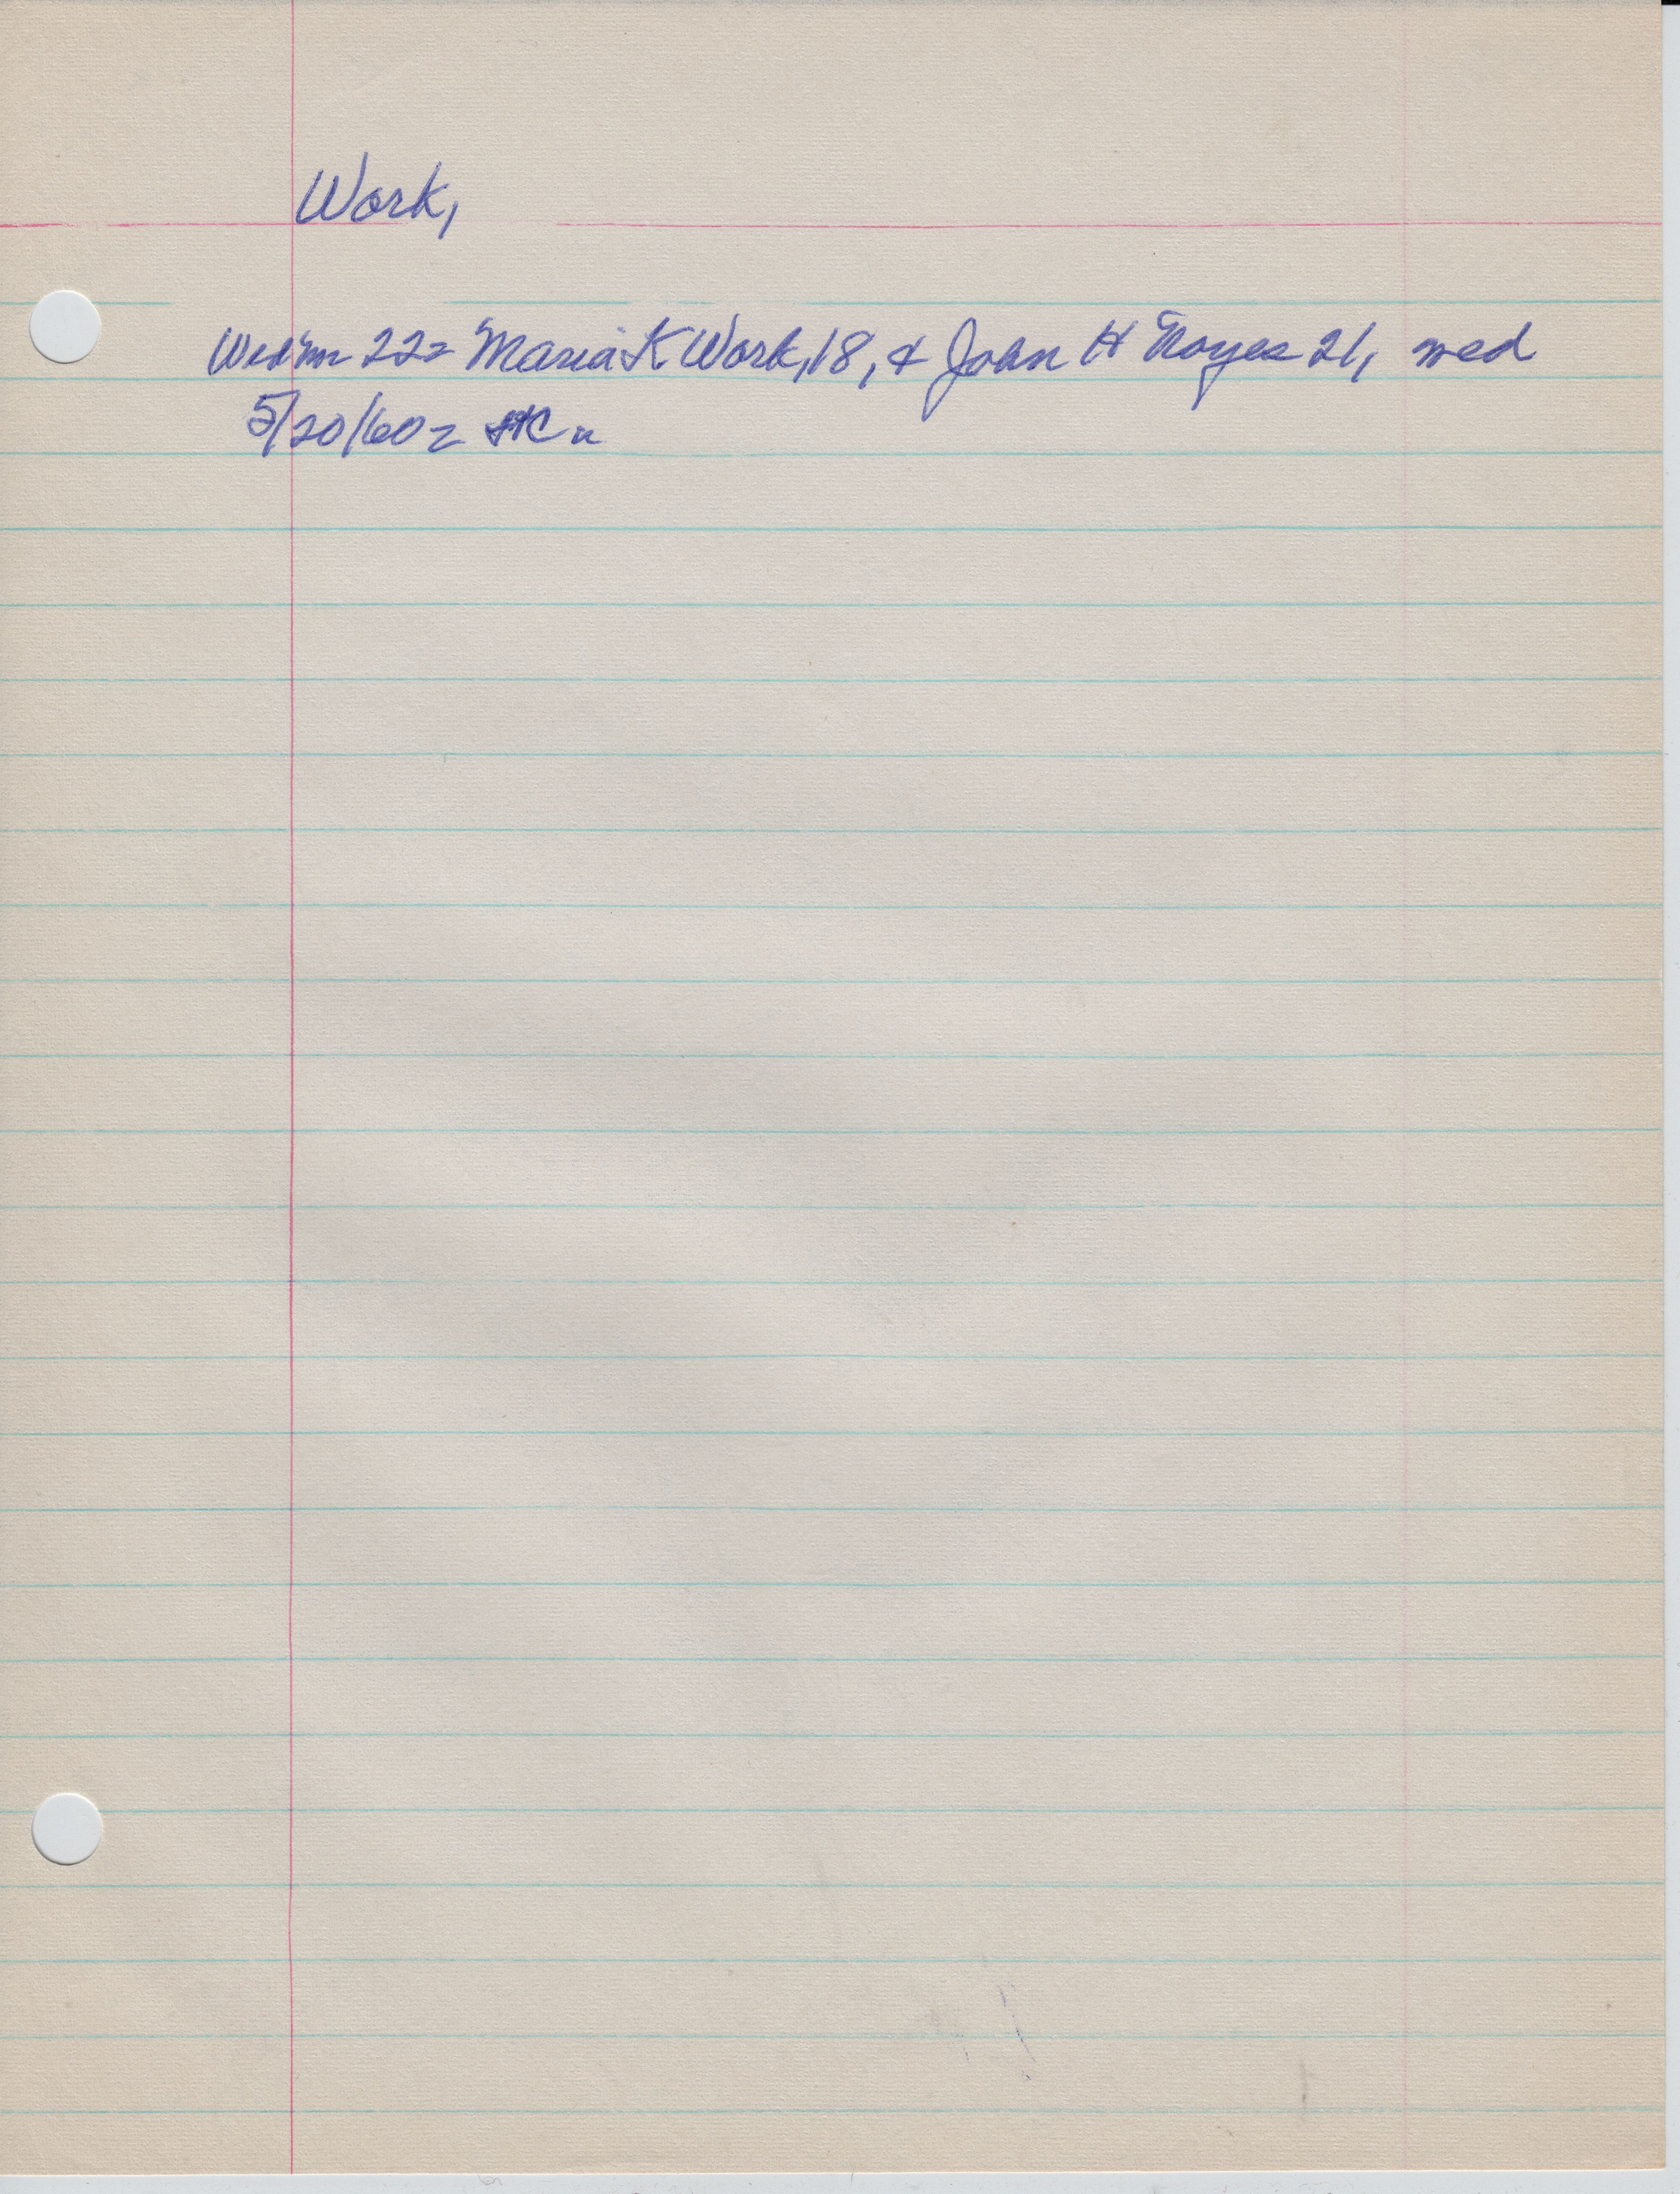 Work,
22= Maria K Work, 18, & John H Noyes 21, med
5/20/60=